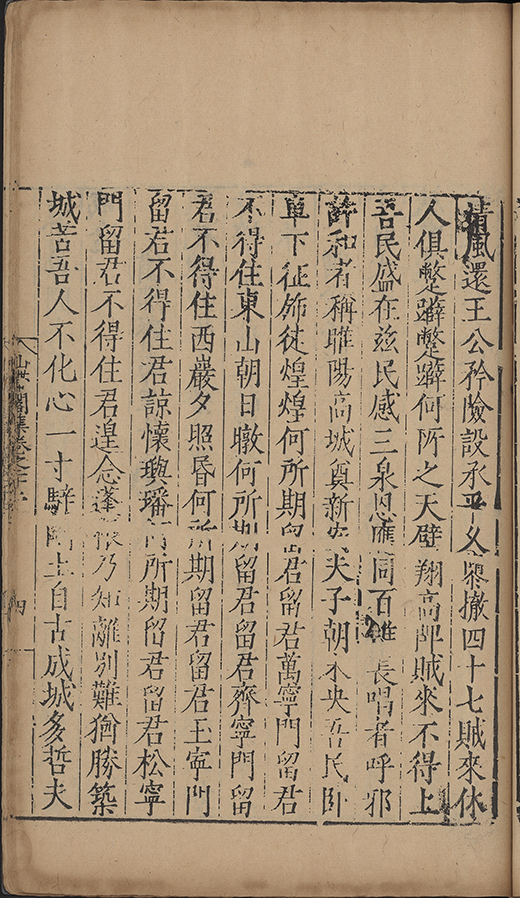 風還王公矜險設承平久樂撤四十七賊來休
人俱蹩躃蹩躃何所之天壁翔高陴賊來不得上
吾民盛在茲民感三泉恩應同百雉長唱者呼邪
許和者稱睢陽高城奠新夫子朝未央吾民臥
車下征佈徒煌煌何所期留君留君萬寧門留君
不得住東山朝日暾何所期留君留君齊寧門留
君不得住西巖夕照昏何所期留君留君玉寧門
留君不得住君諒懷璵璠何所期留君留君松寧
門留君不得住君遑念蓬乃知離別難猶勝築
城苦吾人不化心一寸騂土自古成城多哲夫
閣集卷之
四